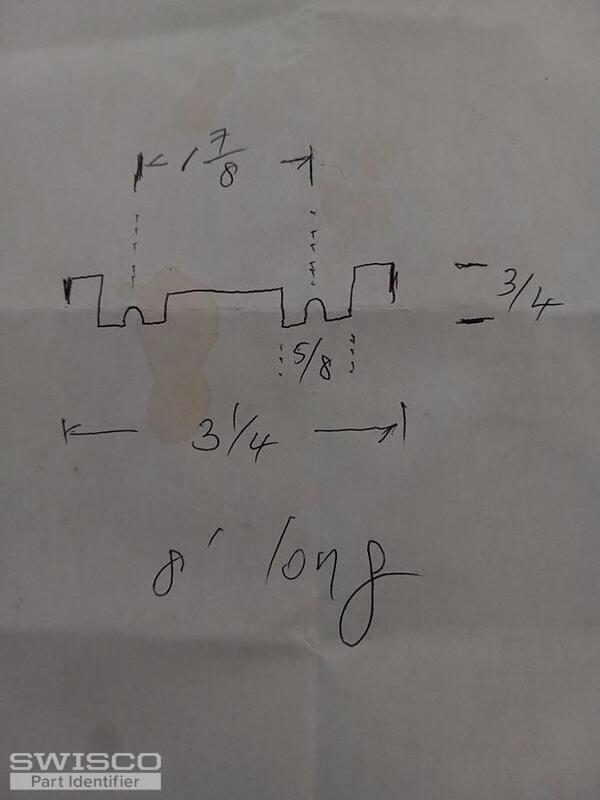 1 7/8
3/4
5/8
3 1/4
8' long
SWISCO
Part Identifier